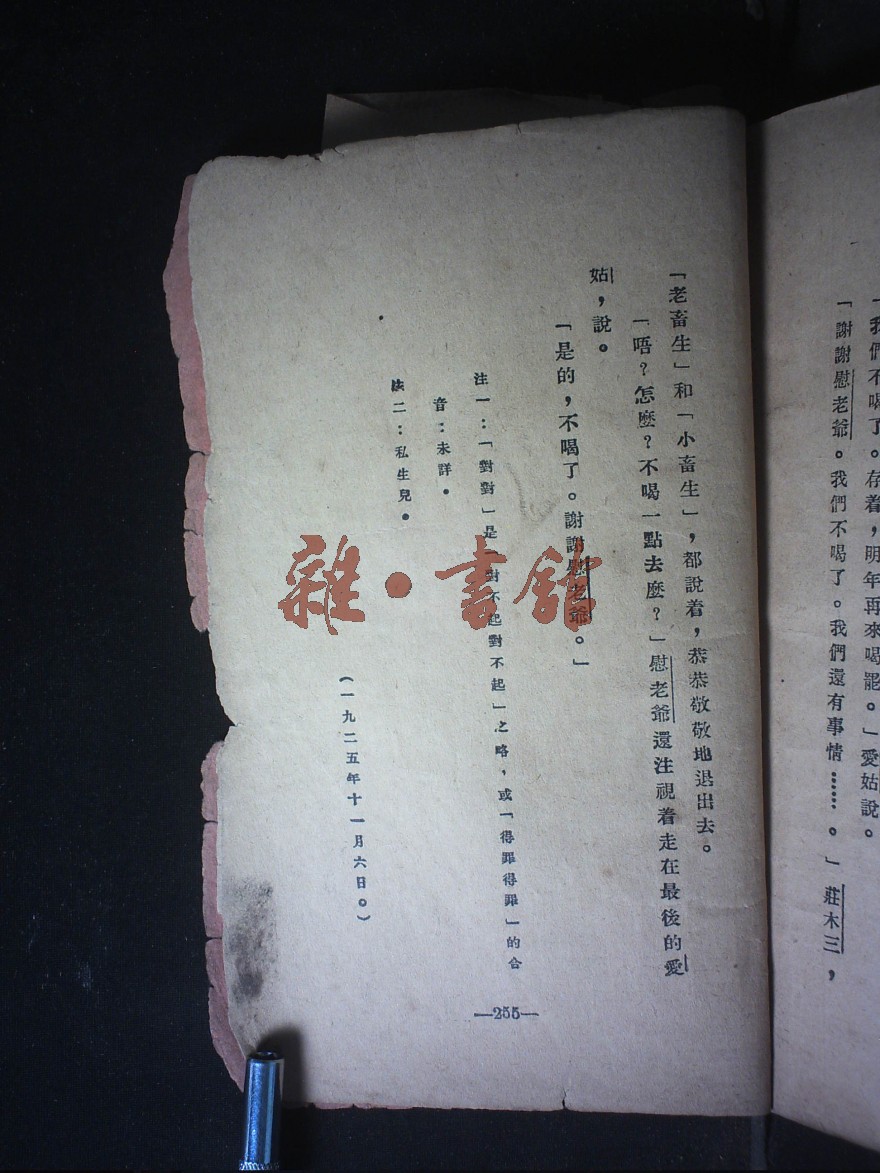 「我們不喝了。存着，明年再來喝罷。」愛姑說。
「謝謝慰老爺。我們不喝了。我們還有事情……。」莊木三，
「老畜生」和「小畜生」，都說着，恭恭敬敬地退出去。
「唔？怎麼？不喝一點去麼？」慰老爺還注視着走在最後的愛
姑，說。
「是的，不喝了。謝謝慰老爺。」
注一：「對對」是「對不起對不起」之略，或「得罪得罪」的合
音：未詳。
注二：私生兒。
（一九二五年十一月六日。）
—255—
雜·書館